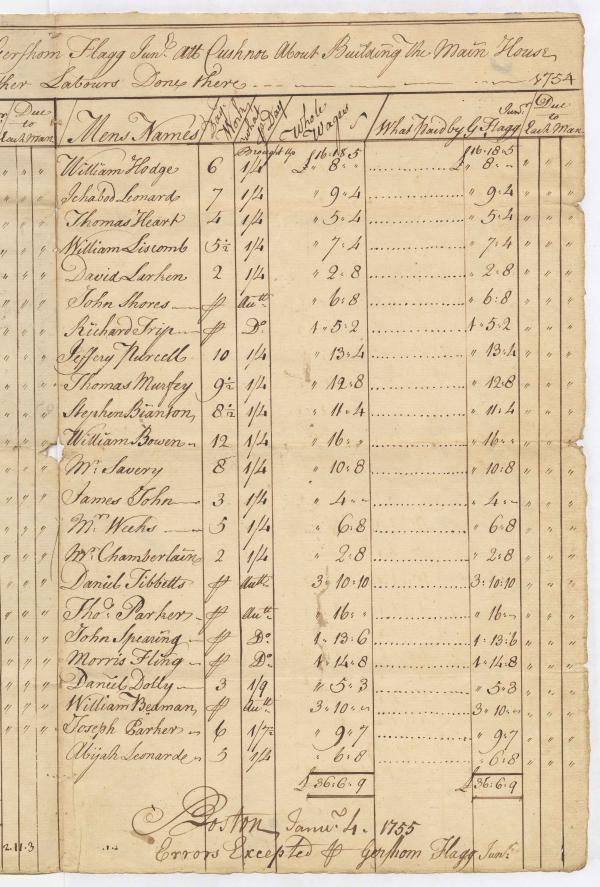 Gershom Flagg Junr. Att Cushnoc About Building The Main House
ther Labours Done there 1754
Due to Each Man Mens Names Days Work what pr Day Whole Wages What Paid by G Flagg Junr. Due to Each Man
Brought Up £16:18:5 £16:18:5
William Hodge 6 1/4 " 8 " " " 8 " " " " "
Ichabod Leonard 7 1/4 " 9:4 " 9:4 " " "
Thomas Heart 4 1/4 " 5:4 " 5:4 " " "
William Liscomb 5½ 1/4 " 7:4 " 7:4 " " "
David Larken 2 1/4 " 2:8 " 2:8 " " "
John Shores pr Autt. " 6:8 " 6:8 " " "
Richard Trip pr Do. 1:5:2 1:5:2 " " "
Jeffery Purcell 10 1/4 " 13:4 " 13:4 " " "
Thomas Murfey 9½ 1/4 " 12:8 " 12:8 " " "
Stephen Bianton 8½ 1/4 " 11:4 " 11:4 " " "
William Bowen 12 1/4 " 16 " " 16 " " " "
Mr. Savery 8 1/4 " 10:8 " 10:8 " " "
James John 3 1/4 " 4 " " 4 " " " "
Mr. Weeks 5 1/4 " 6:8 " 6:8 " " "
Mr. Chamberlain 2 1/4 " 2:8 " 2:8 " " "
Daniel Tibbetts pr Autt. 3:10:10 3:10:10 " " "
Thos. Parker pr Autt. " 16 " " 16 " " " "
John Spearing pr Do. 1:13:6 1:13:6 " " "
Morris Fling pr Do. 1:14:8 1:14:8 " " "
Daniel Dolly 3 1/9 " 5:3 " 5:3 " " "
William Bedman pr Autt. 3:10 " 3:10 " " " "
Joseph Parker 6 1/7½ " 9:7 " 9:7 " " "
Abijah Leonarde 5 1/4 " 6:8 " 6:8 " " "
£36:6:9 £36:6:9
Boston Janur. 4. 1755
2.11.3 Errors Excepted pr Gershom Flagg Junr.